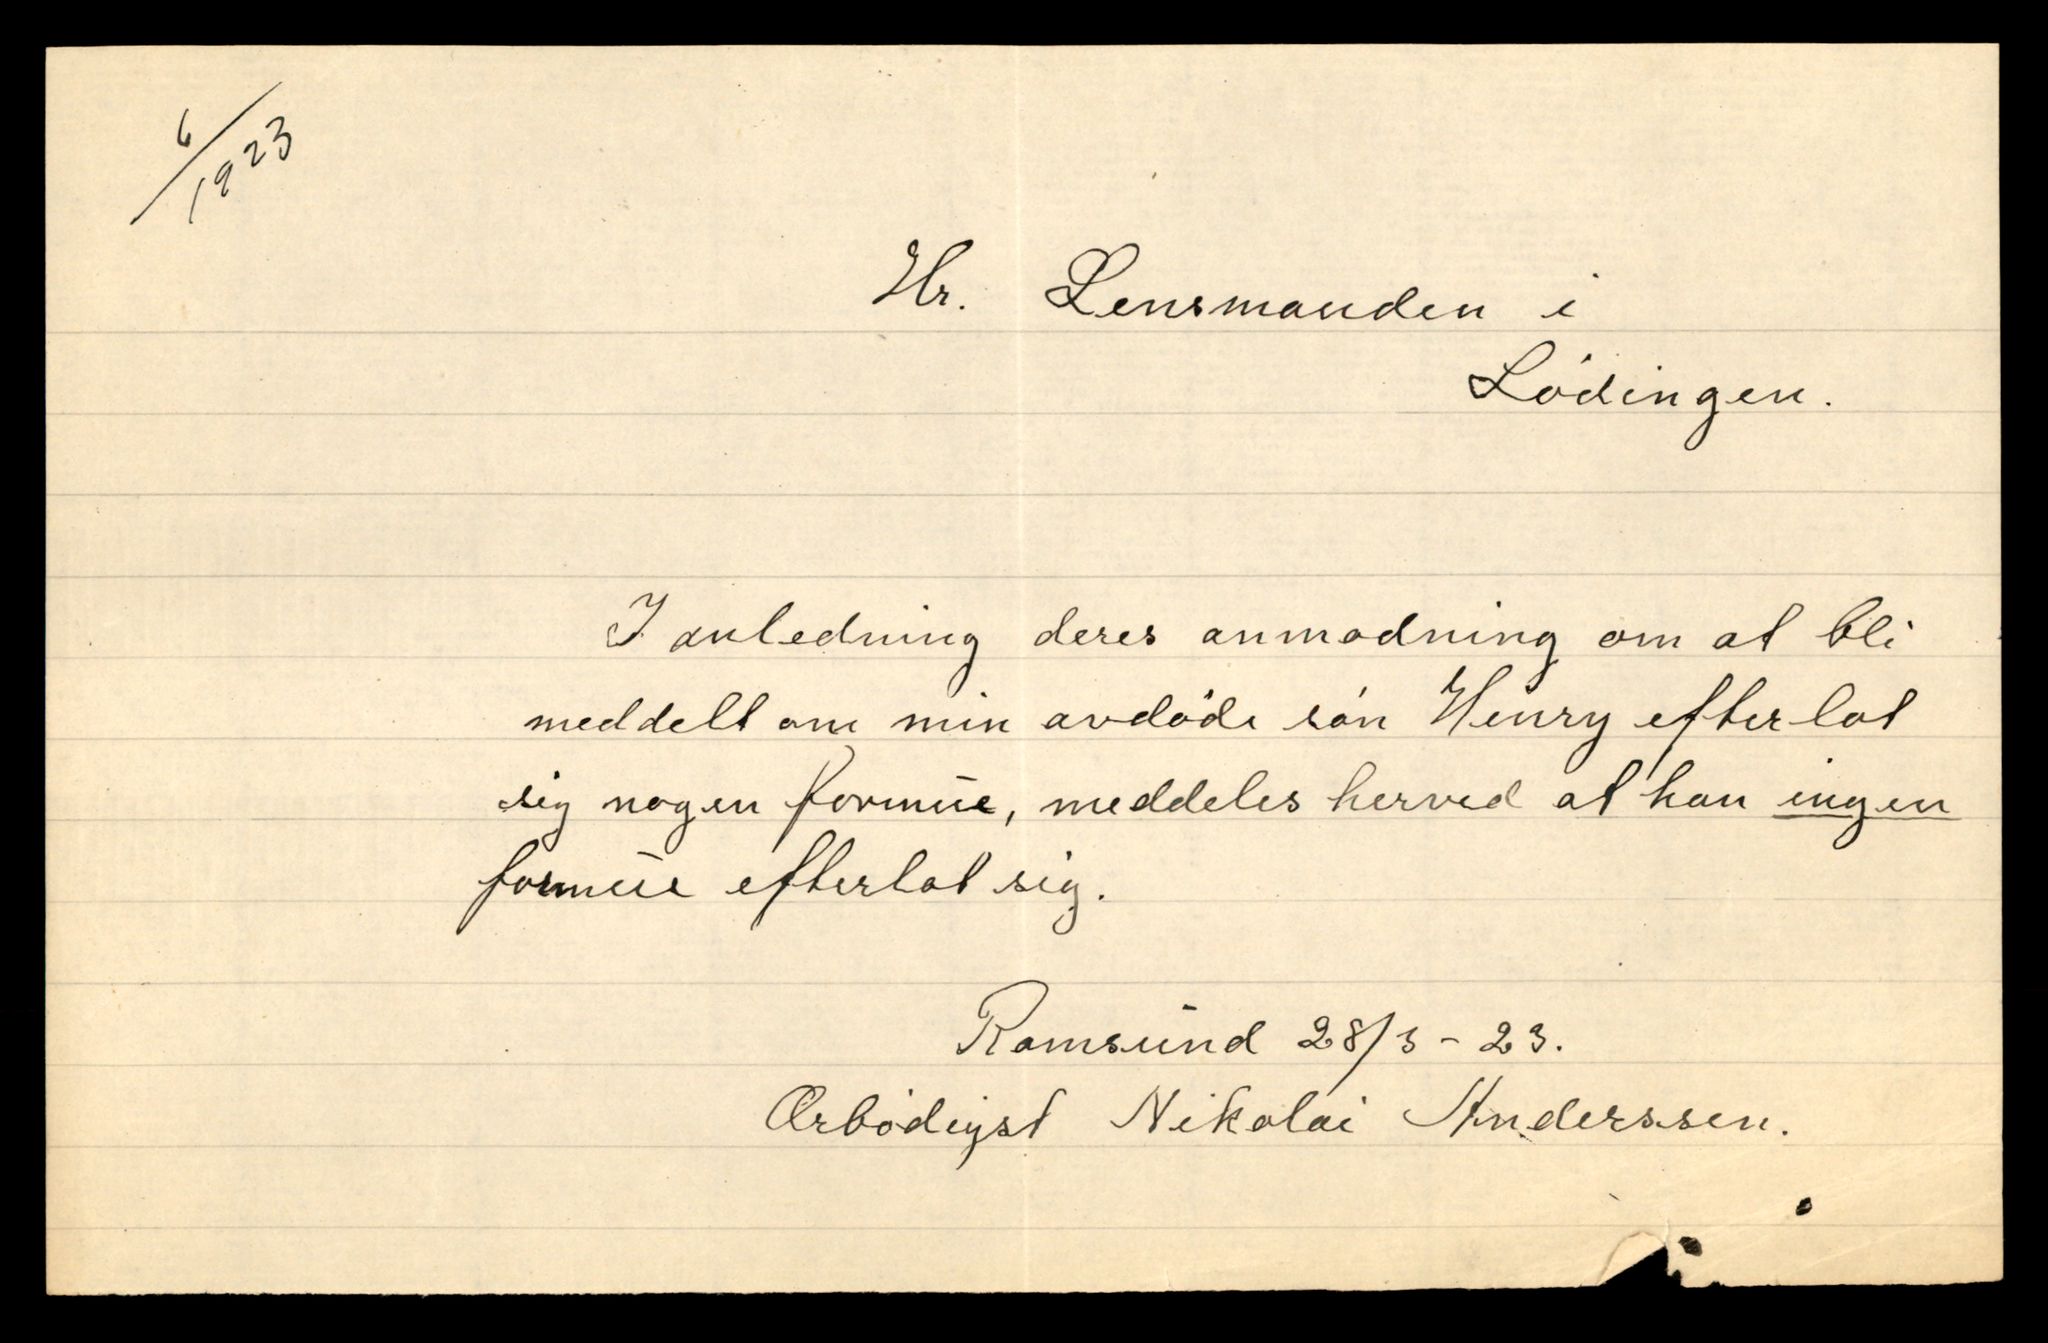 6/1923
Hr. Lensmanden i
Lødingen.
I anledning deres anmodning om at bli
meddelt om min avdøde søn Henry efterlot
sig nogen formue, meddeles herved at han ingen
formue efterlot sig.
Ramsund 28/3-23.
Ærbødigst Nikolai Anderssen.